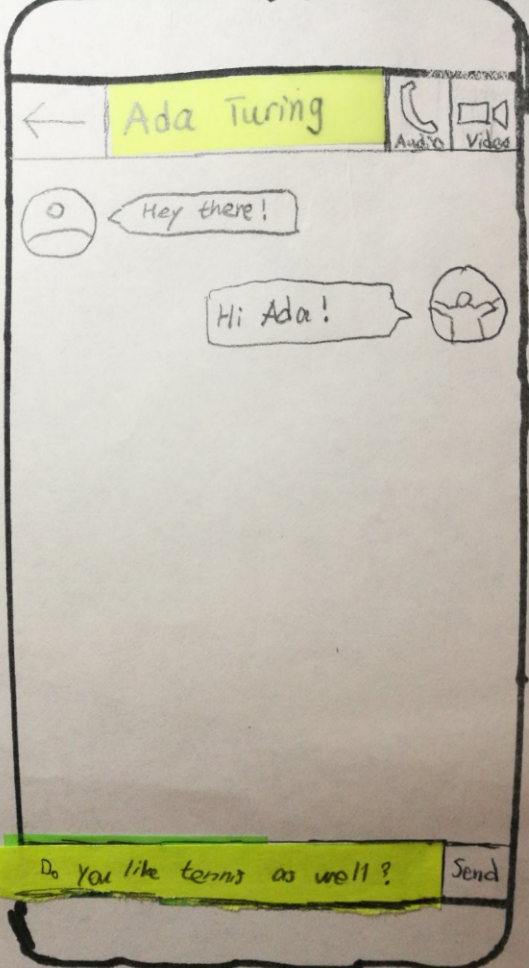 Ada Turing
Audio Video
Hey there!
Hi Ada!
Do you like tennis as well?
Send